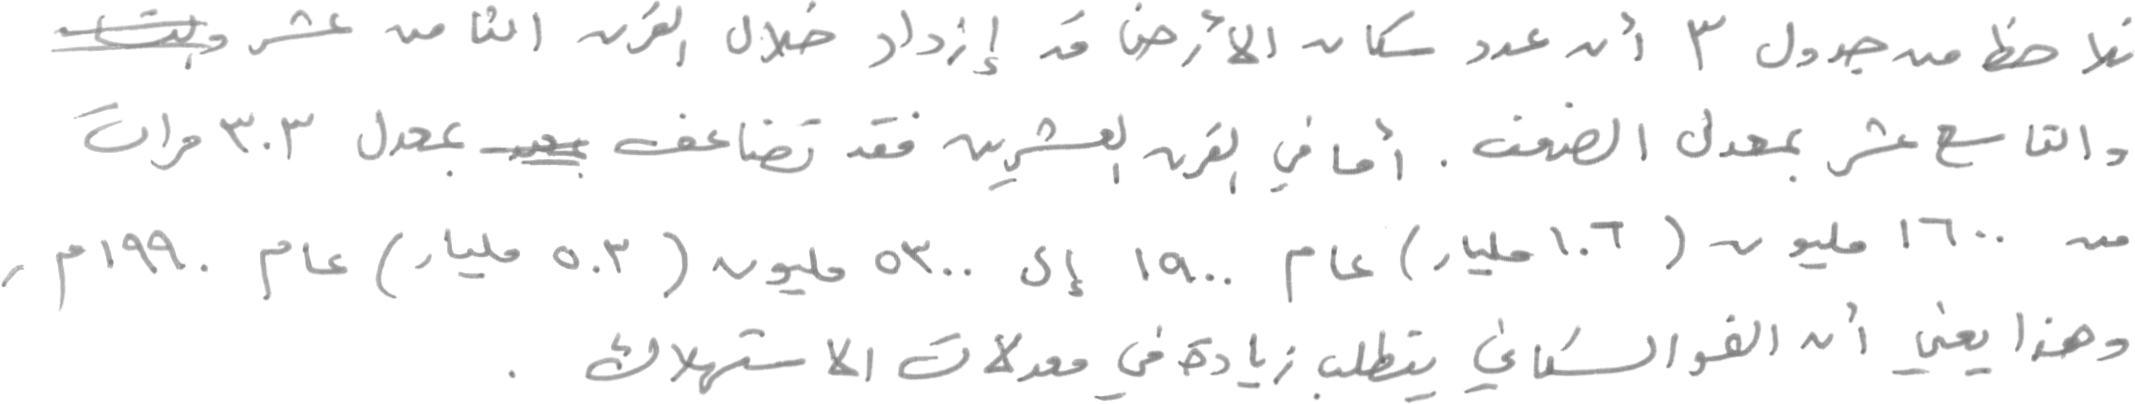 نلاحظ من جدول ٣ أن عدد سكان الأرض قد إزداد خلال القرن الثامن عشر
والتاسع عشر بمعدل الضعف . أما في القرن العشرين فقد تضاعف بمعدل ٣.٣ مرات
من ١٦٠٠ مليون (١.٦ مليار) عام ١٩٠٠ إلى ٥٣٠٠ مليون (٥.٣ مليار) عام ١٩٩٠م ،
وهذا يعني أن النمو السكاني يتطلب زيادة في معدلات الاستهلاك .